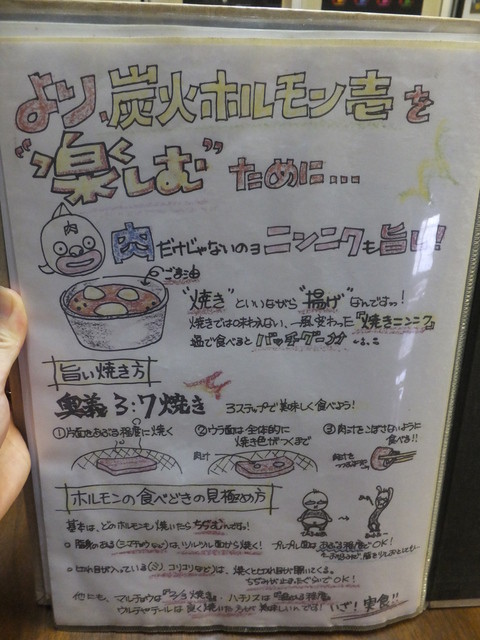 より、炭火ホルモン壱を
"楽しむ" ために...
肉
肉だけじゃないのョニンニクも旨い!
ごま油
"焼き"といいながら"揚げ"なんですッ!
焼きでは味わえない、一風変わった『焼きニンニク』
塩で食べるとバッチグーッ
旨い焼き方
奥義 3:7焼き 3ステップで美味しく食べよう!
①片面をあぶる程度に焼く
②ウラ面は全体的に
焼き色がつくまで
③肉汁をこぼさないように
食べる!!
肉汁
肉汁を
ホルモンの食べどきの見極め方
基本は、どのホルモンも焼いたらちぢむんですッ!
脂身のある(シマチョウなど)は、ツルツル面から焼く!
プルプル面はあぶる程度でOK!
切れ目が入っている(ミノ コリコリなど)は、焼くと切れ目が開いてくる。
ちぢみが止まったぐらいでOK!
他にも、マルチョウは"7/3焼き" ハチノスは"あぶる程度"
ウルテやテールは良く焼いた方が美味しいんです! いざ!実食!!